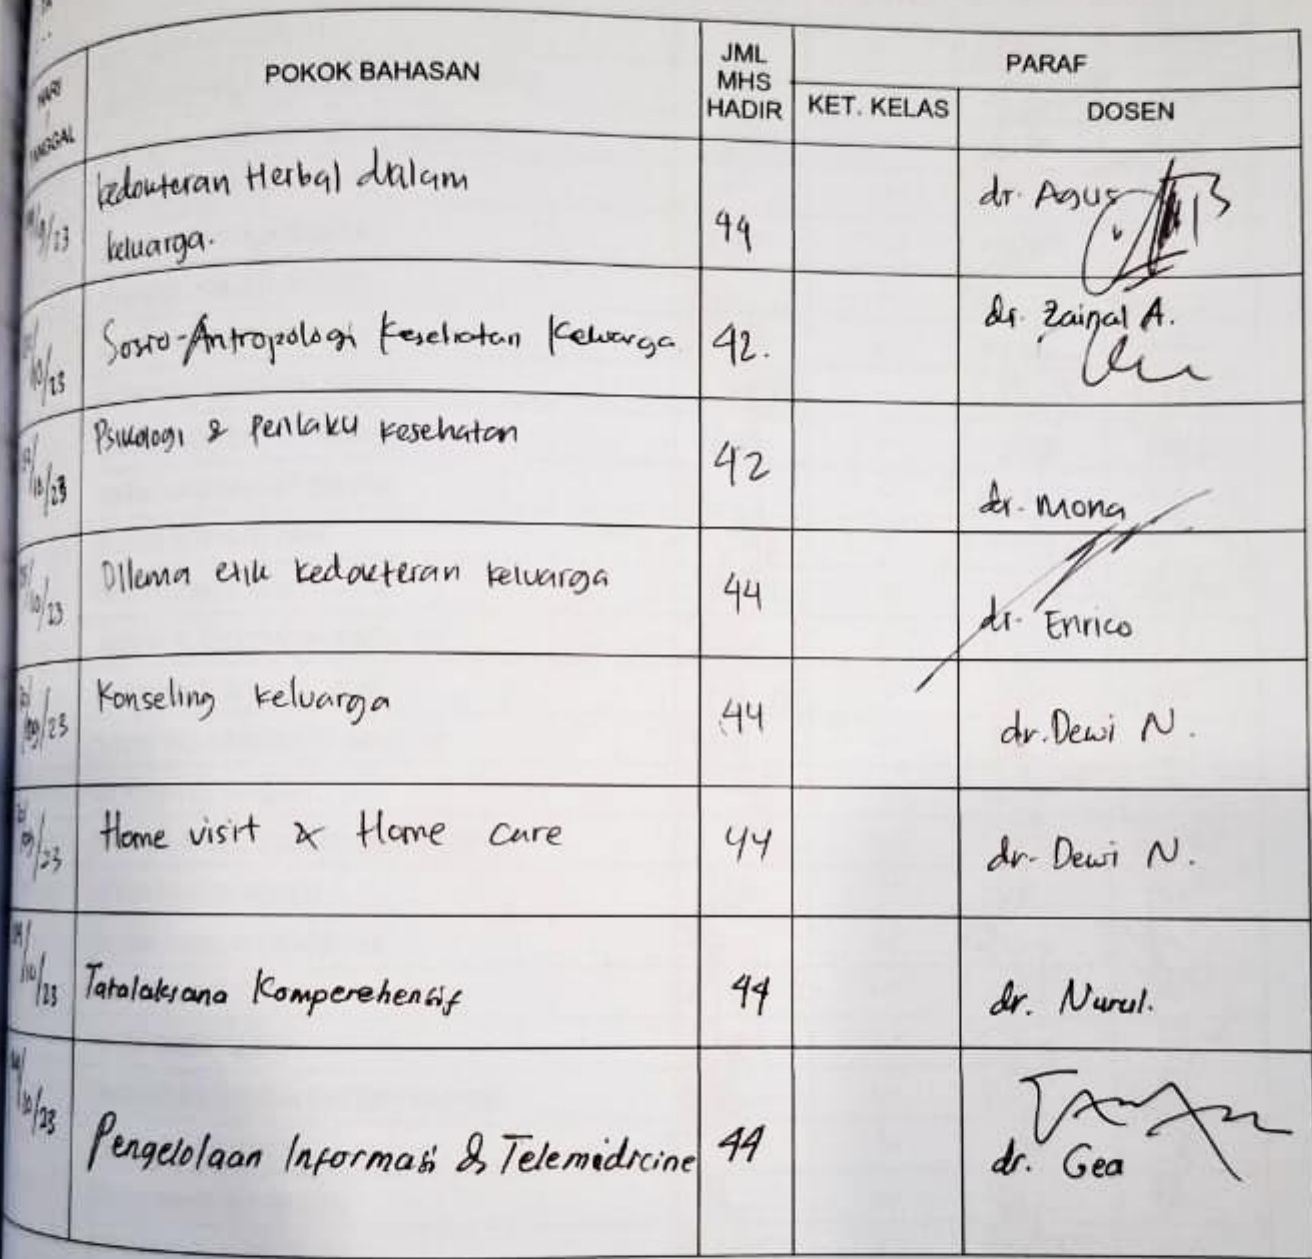 HARI
TANGGAL
POKOK BAHASAN
JML
MHS
HADIR
PARAF
KET. KELAS
DOSEN
kedokteran Herbal dalam
keluarga.
44
dr. Agus
Sosio-Antropologi Kesehatan Keluarga
42.
dr. Zainal A.
/10/23
Psikologi & Perilaku kesehatan
42
dr. Mona
/10/23
Dilema etik kedokteran keluarga
44
dr. Enrico
/10/23
Konseling keluarga
44
dr. Dewi N.
/09/23
Home visit & Home care
44
dr. Dewi N.
/09/23
Tatalaksana Komperehensif
44
dr. Nurul.
/10/23
Pengelolaan Informasi & Telemidicine
44
dr. Gea
/10/23